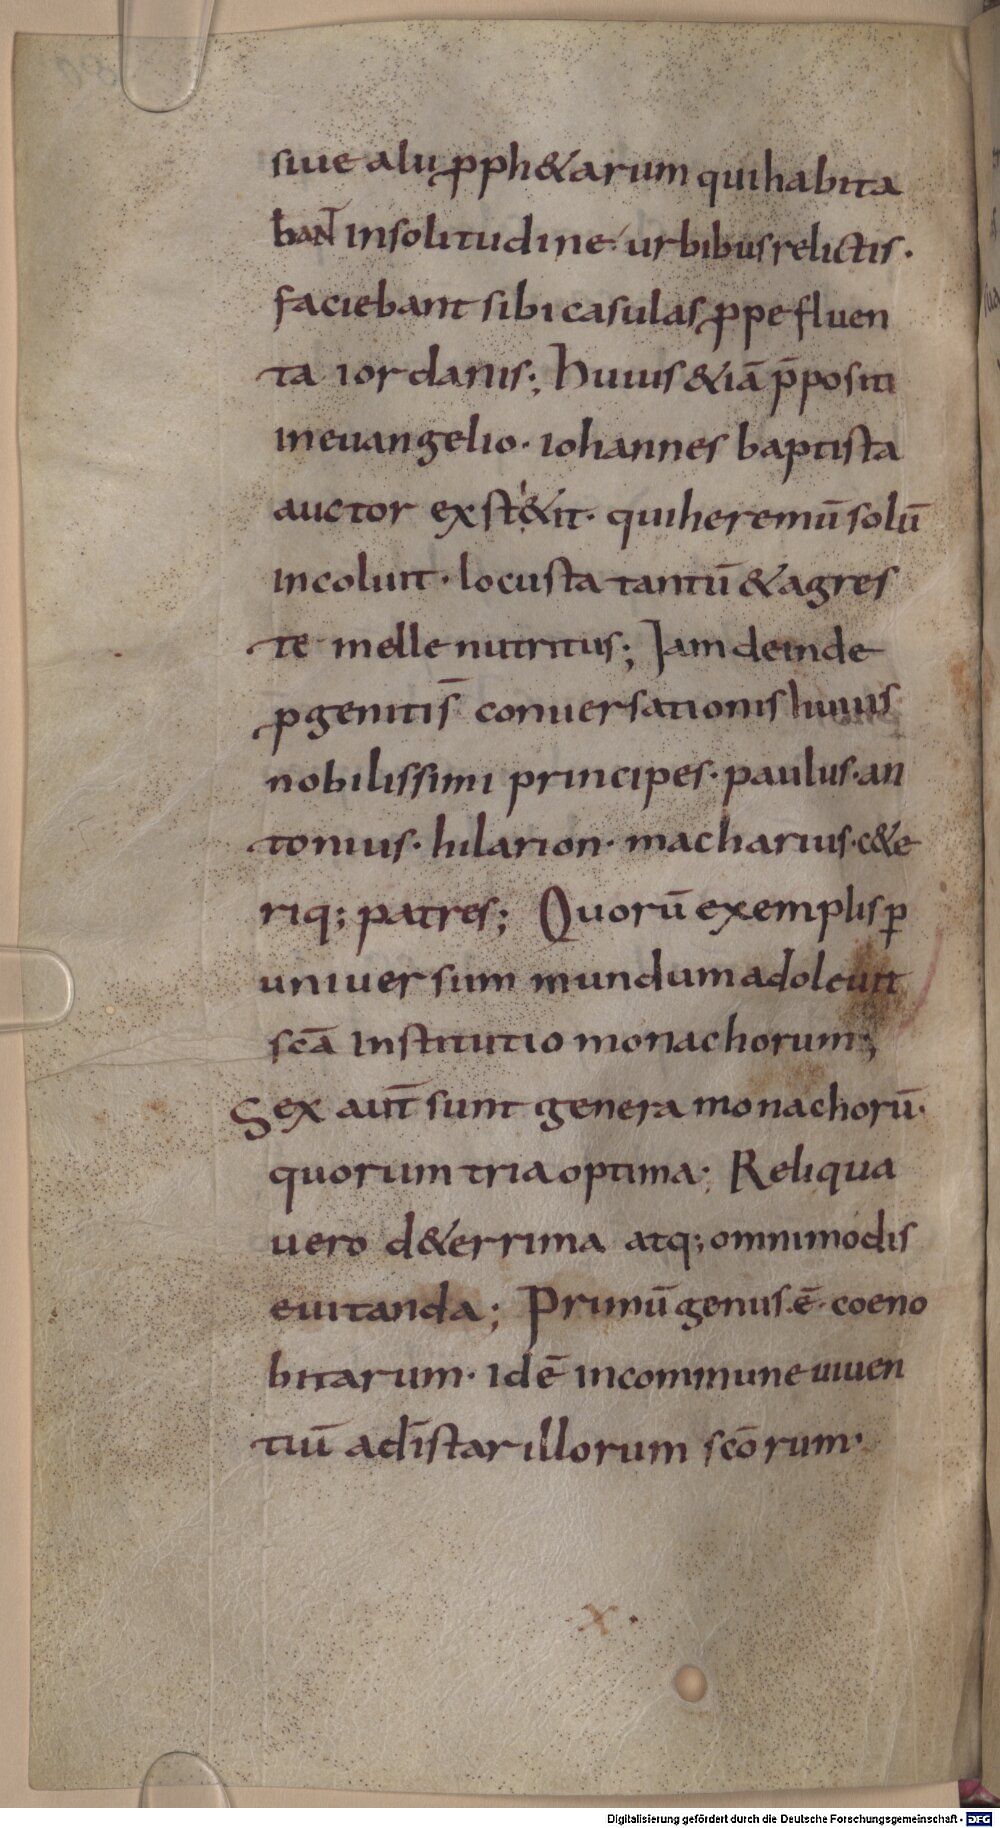 siue alii ꝓph&arum qui habita
banT insolitudine urbibus relictis·
faciebant sibi casulas ꝓpe fluen
ta iordanis; Huius &iā p̄positi
in euangelio· iohannes baptista
auctor exst&it· qui heremū solū
incoluit· locusta tantū & agres
te melle nutritus; Iam deinde
ꝓgenitis̄ conuersationis huius
nobilissimi principes· paulus· an
tonius· hilarion· macharius· c&e
riq; patres; Quorū exemplis ꝑ
uniuersum mundum adoleuit
sc̄a institutio monachorum;
Sex aut̄ sunt genera monachorū·
quorum tria optima· Reliqua
uero d&errima atq; omnimodis
euitanda; Primū genus ē· coeno
bitarum· idē in commune uiuen
tiū ad īstar illorum sc̄orum·
x·
Digitalisierung gefördert durch die Deutsche Forschungsgemeinschaft - DFG